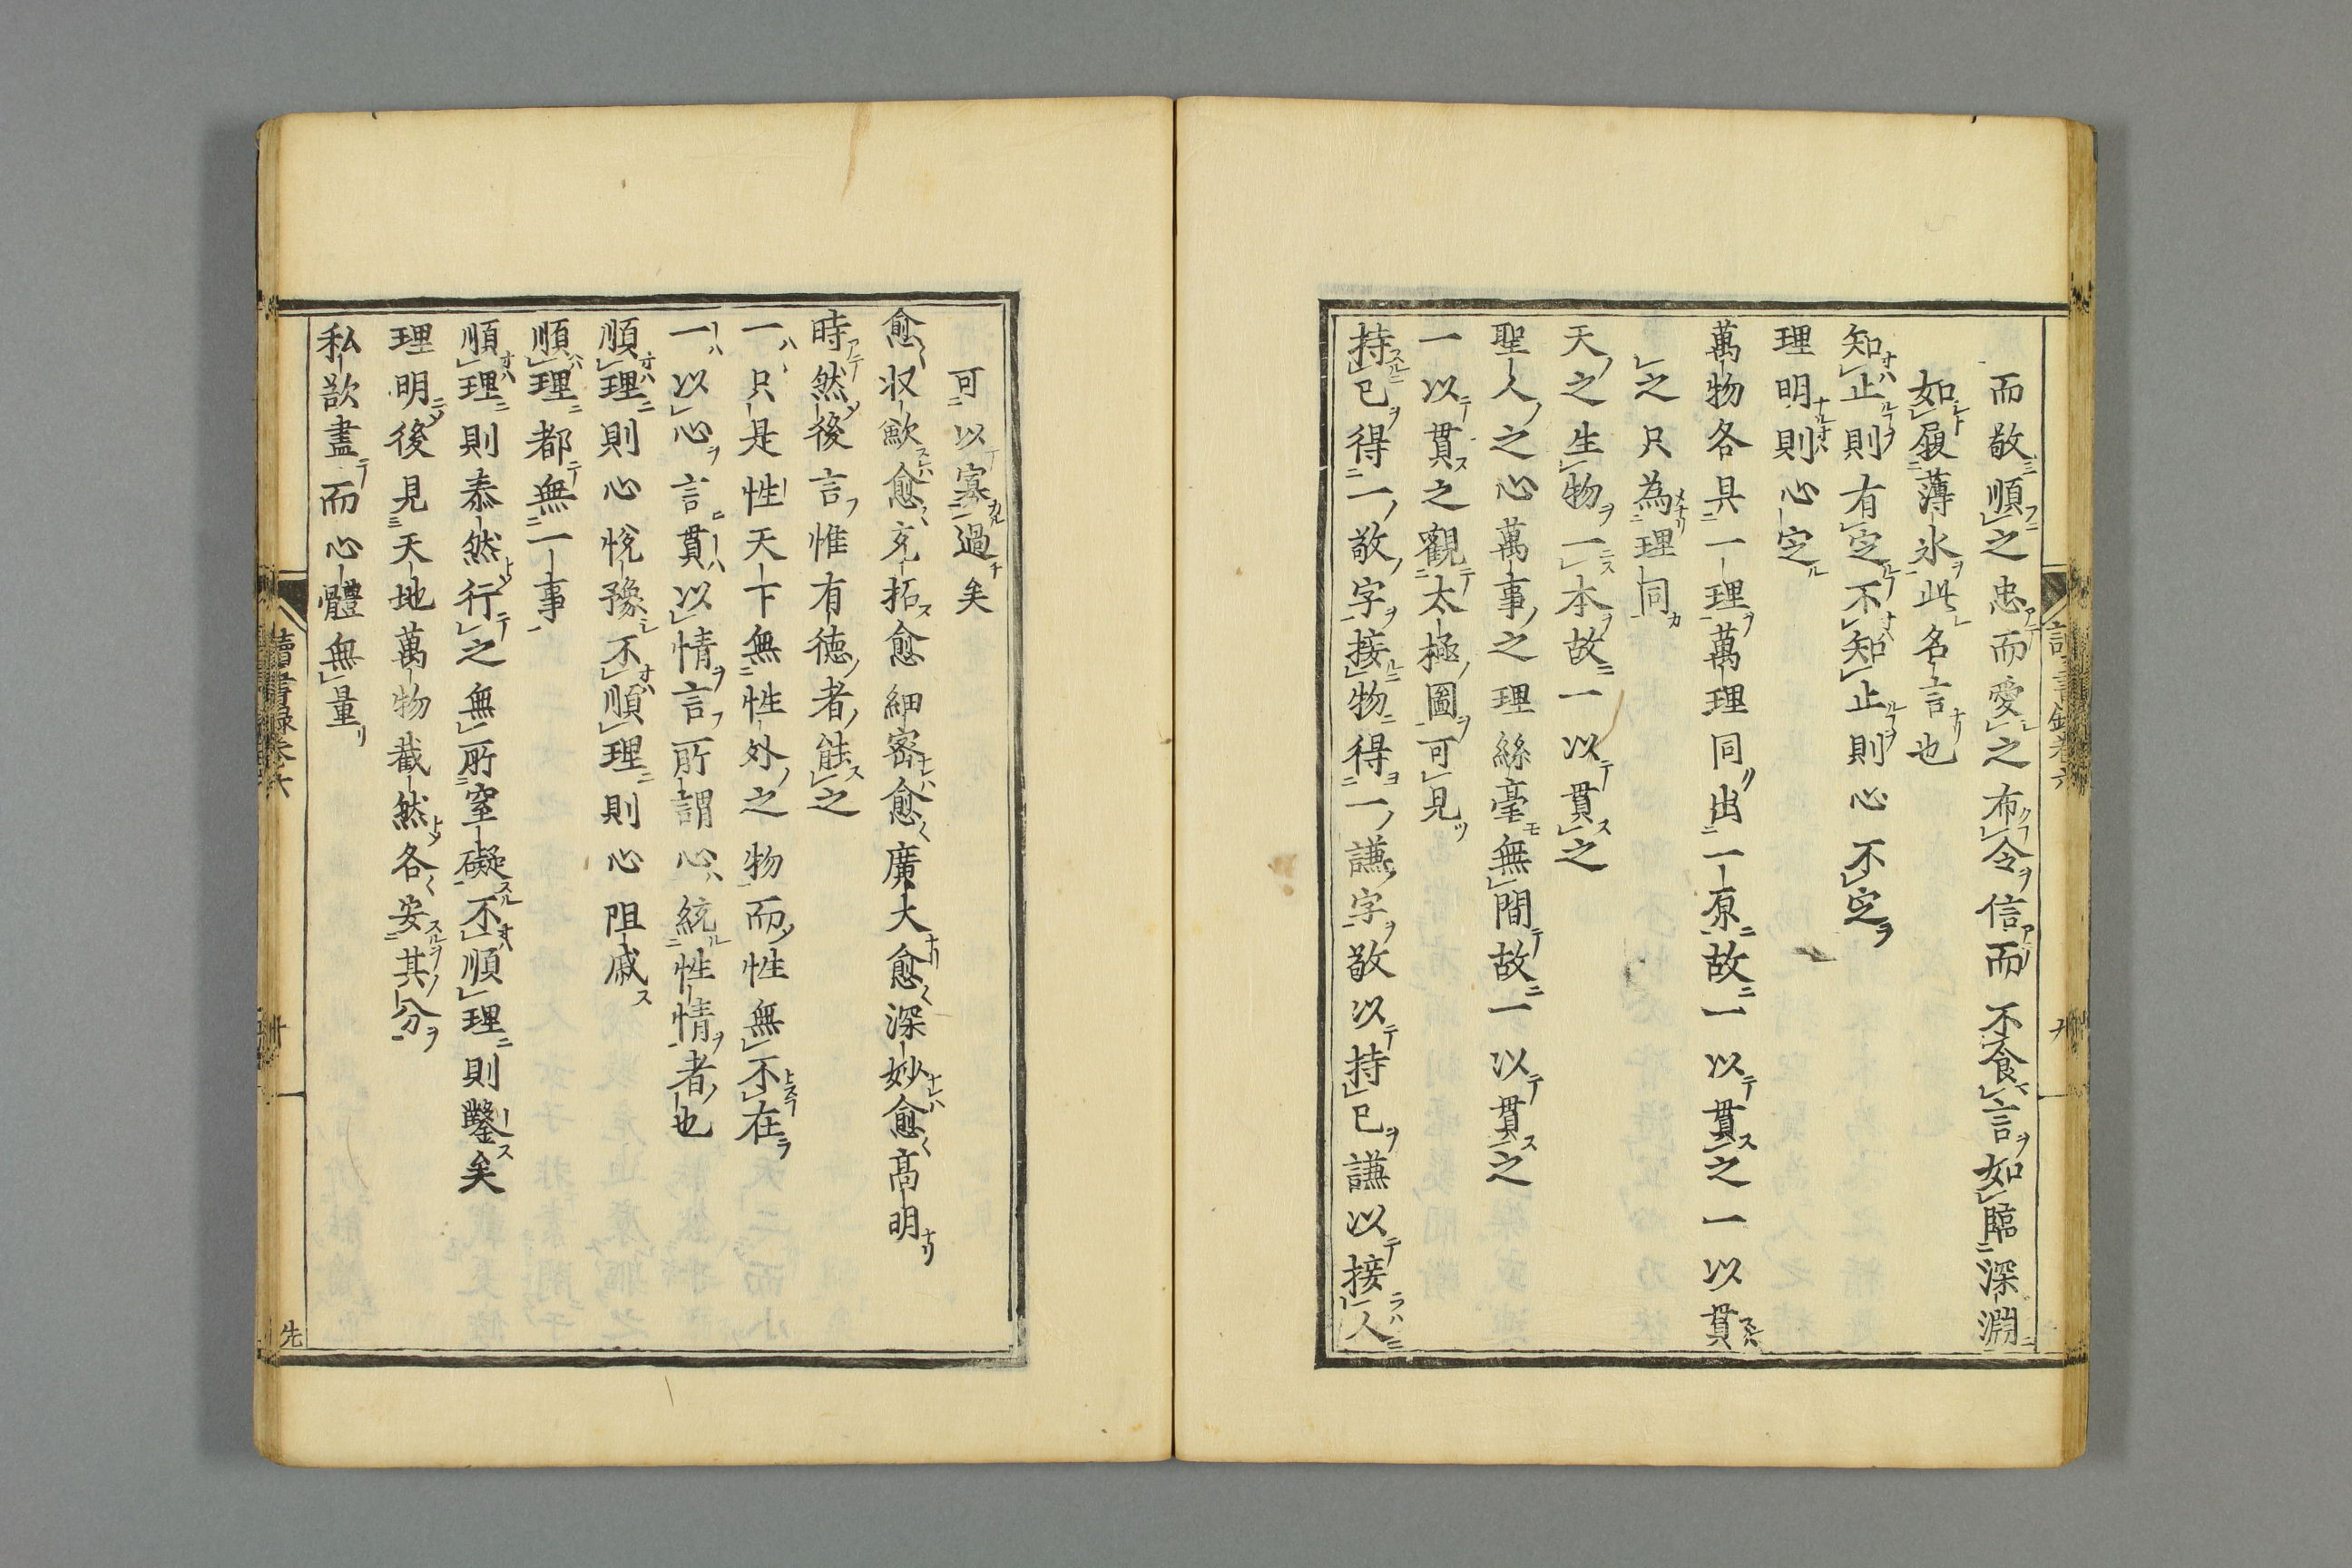 而敬順之忠而愛之布令信而不食言如臨深淵
如履薄氷此名言也
知止則有定不知止則心不定
理明則心定
萬物各具一理萬理同出一原故一以貫之一以貫
之只為理同
天之生物一本故一以貫之
聖人之心萬事之理絲毫無間故一以貫之
一以貫之觀太極圖可見
持已得一敬字接物得一謙字敬以持已謙以接人
可以寡過矣
愈収歛愈充拓愈細宻愈廣大愈深妙愈髙明
時然後言惟有徳者能之
一只是性天下無性外之物而性無不在
一以心言貫以情言所謂心統性情者也
順理則心悅豫不順理則心阻戚
順理都無一事
順理則泰然行之無所窒礙不順理則鑿矣
理明後見天地萬物截然各安其分
私欲盡而心體無量
讀書録巻六
先